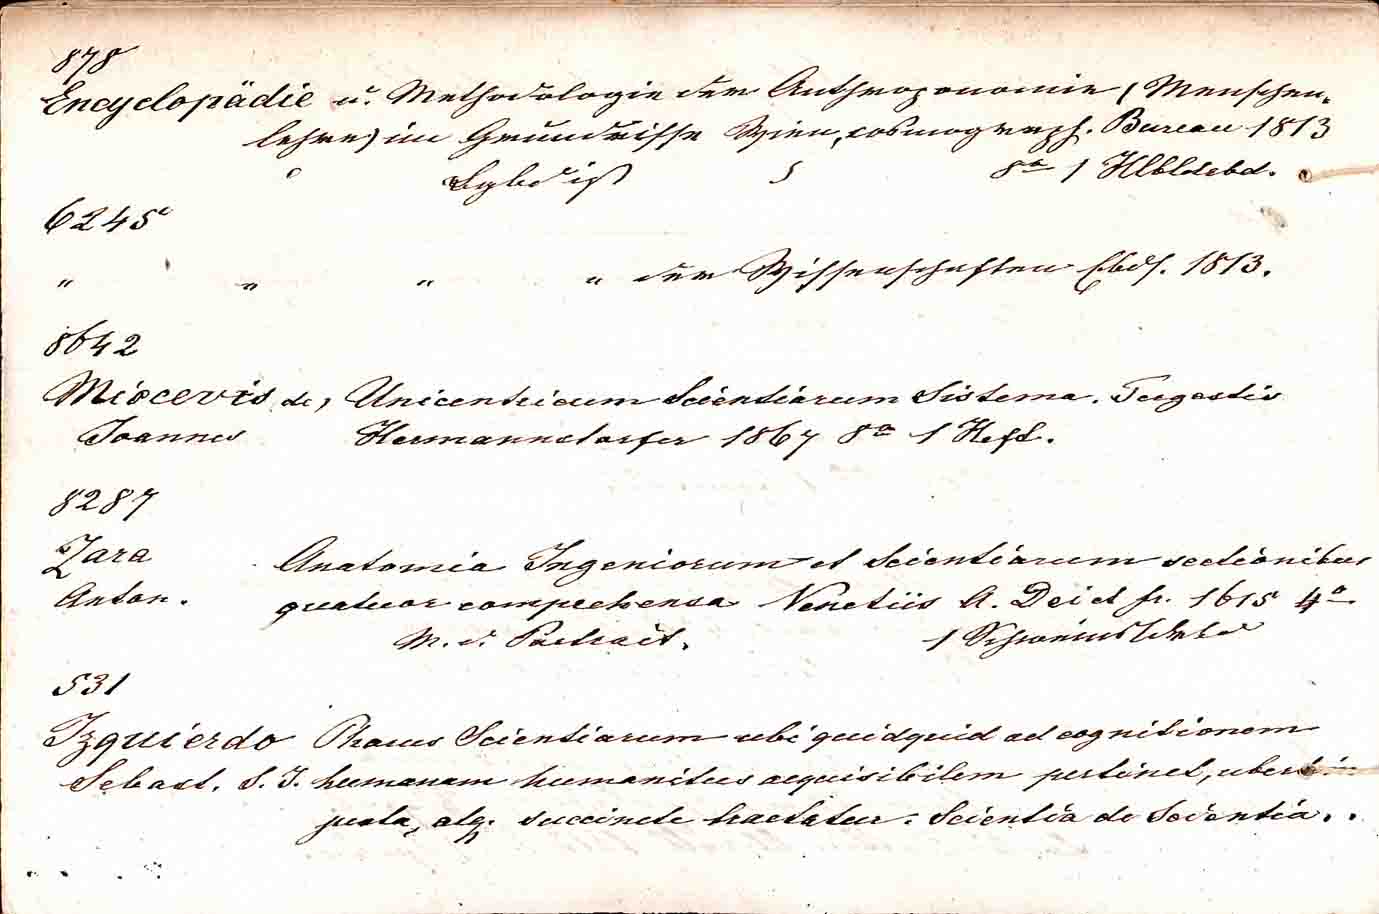 878
Encyclopädie u. Methodologie der Anthroponomie (Menschen-
lehre) im Grundrisse Wien, cosmograph. Bureau 1813
8o 1 Hlbldrbd.
6245
" " " " der Wissenschaften Ebds. 1813.
8642
Miocevis de, Unicentricum Scientiarum Sistema. Tergestis
Joannes Hermannstorfer 1867 8o 1 Heft.
8287
Zara Anatomia Ingeniorum et Scientiarum sectionibus
Anton. quatuor comprehensa Venetiis A. Dei et fr. 1615 4o
M. d. Portrait. 1
531
Izquierdo Pharus Scientiarum ubi quidquid ad cognitionem
Sebast. S. J. humanam humanitus acquisibilem pertinet, uberi
juxta, atq. succincte tractatur. Scientia de Scientia.